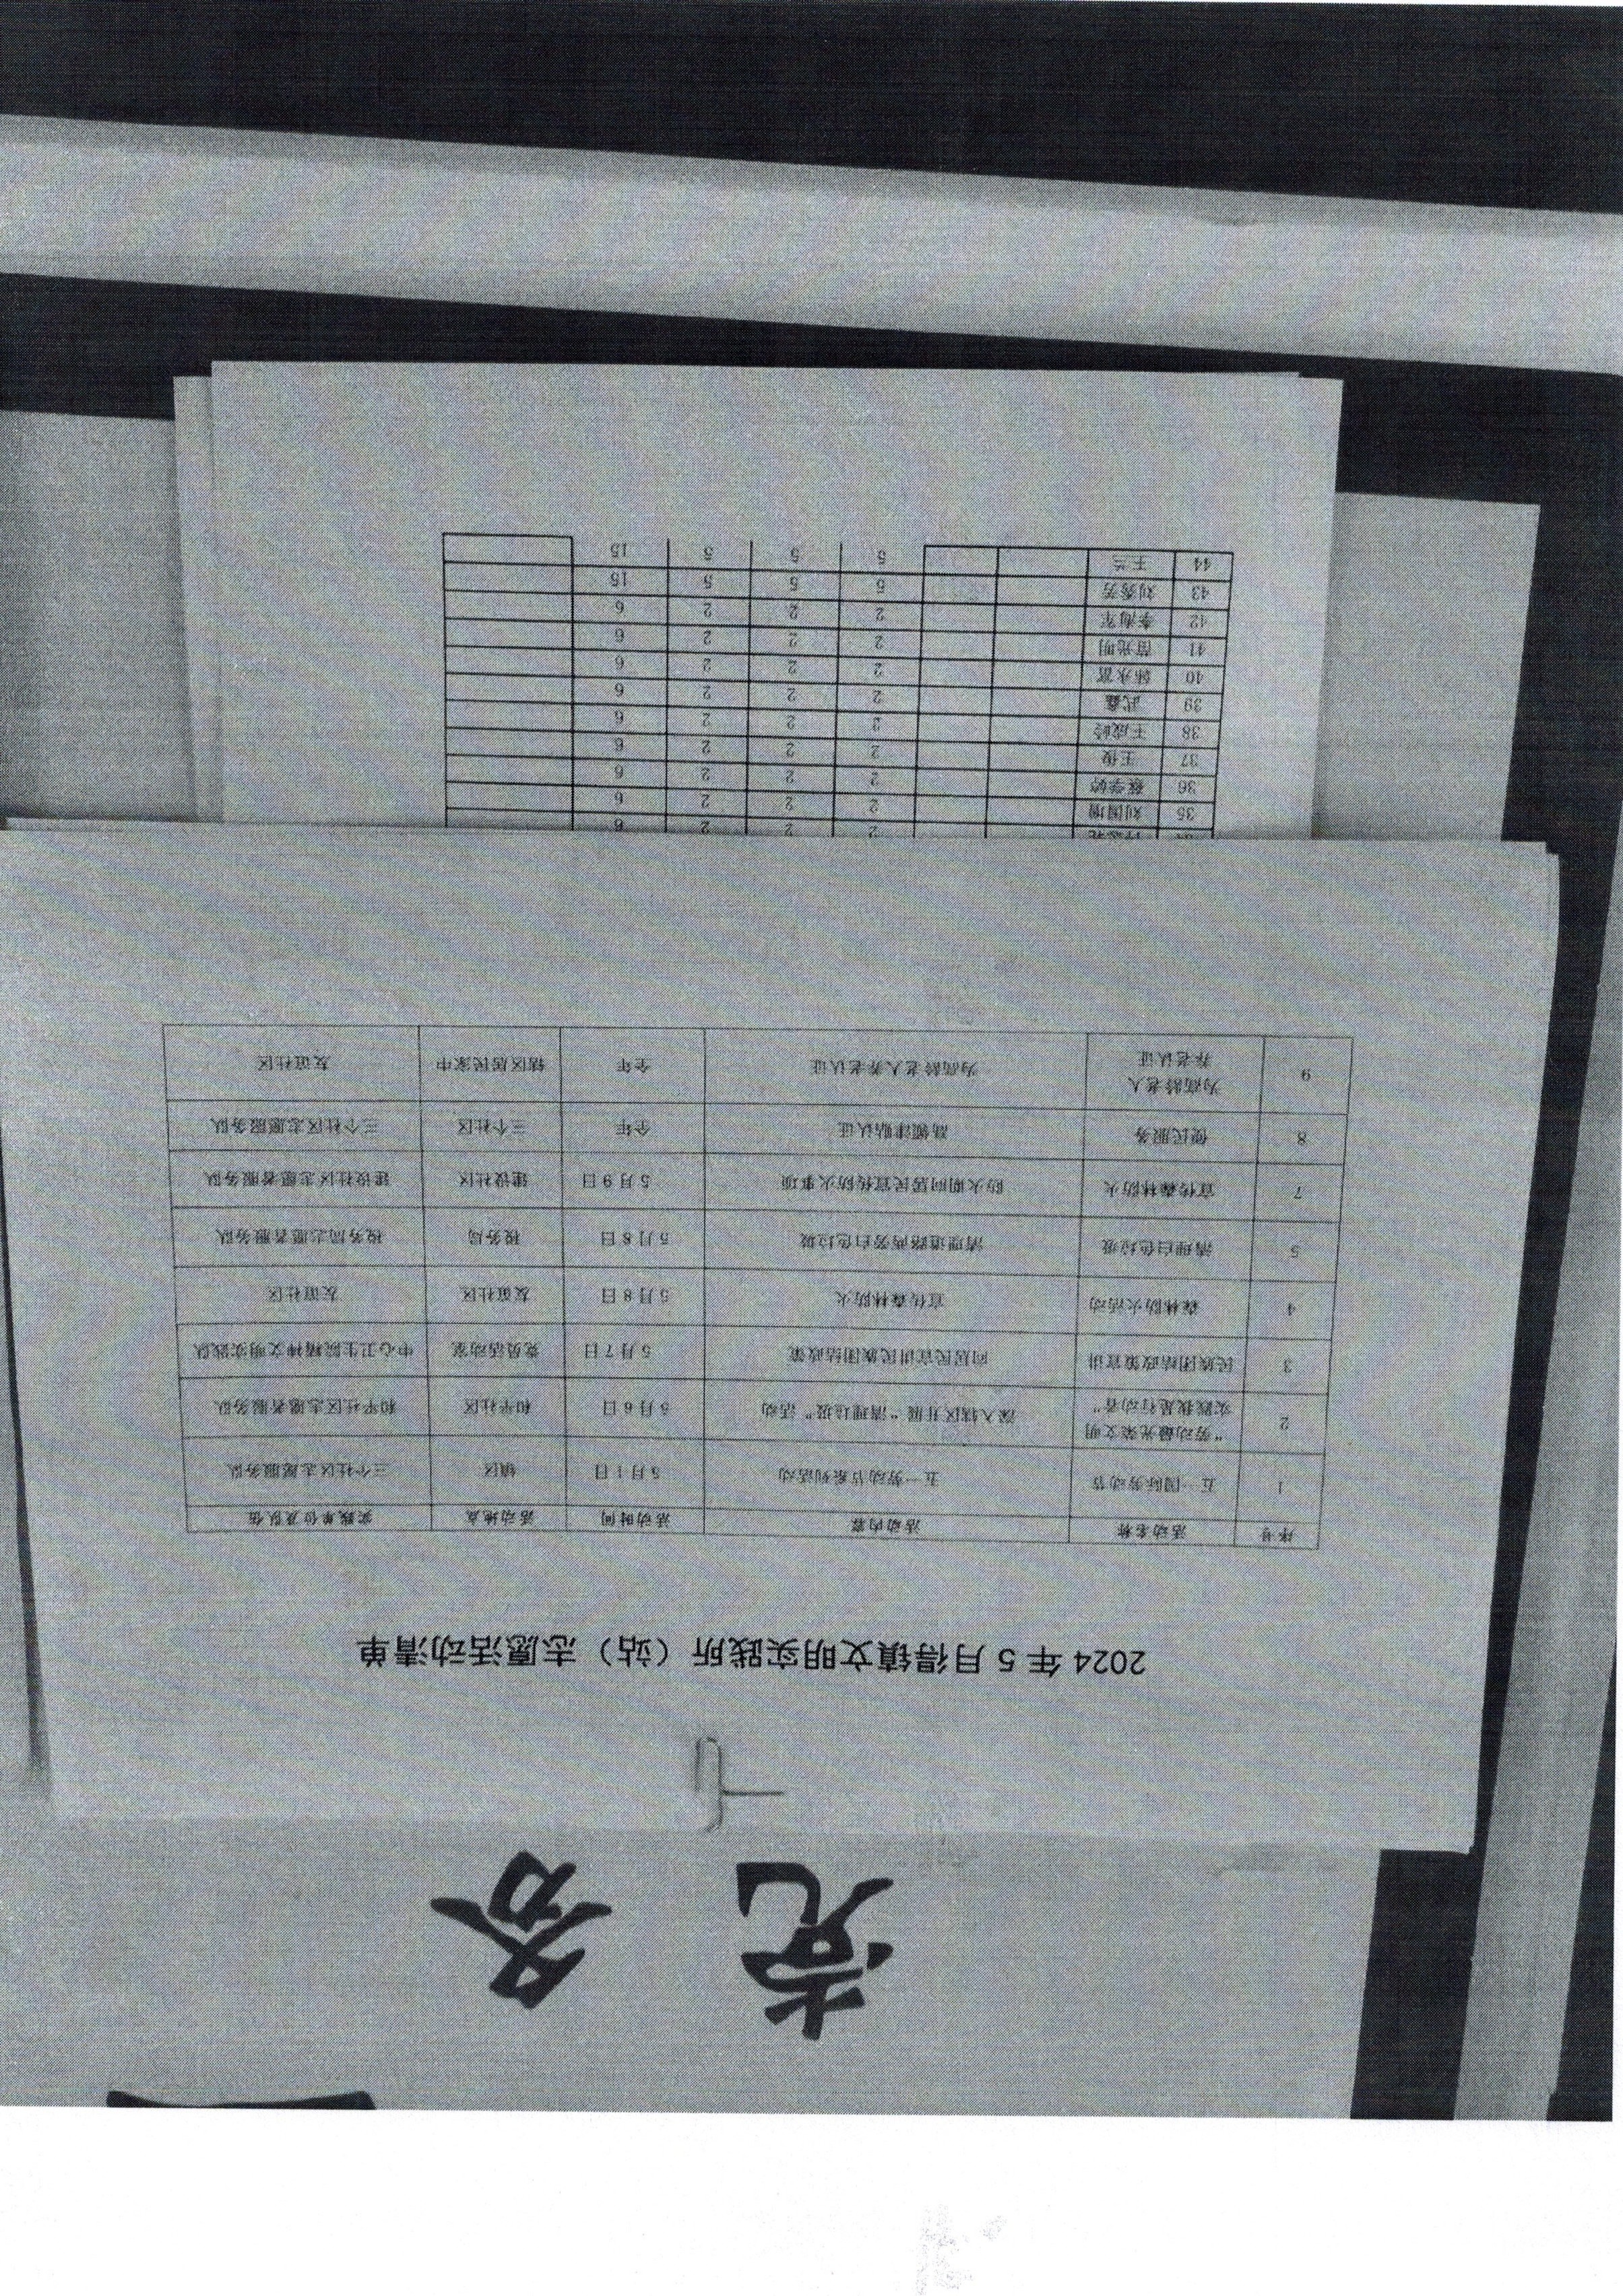 党 务
2024 年 5 月得镇文明实践所（站）志愿活动清单
序号 活动名称 活动内容 活动时间 活动地点 实践单位及队伍
1 五一国际劳动节 五一劳动节系列活动 5月1日 镇区 三个社区志愿服务队
2 “劳动最光荣文明
实践我是行动者” 深入辖区开展“清理垃圾”活动 5月6日 和平社区 和平社区志愿者服务队
3 民族团结政策宣讲 向居民宣讲民族团结政策 5月7日 党员活动室 中心卫生院精神文明实践队
4 森林防火活动 宣传森林防火 5月8日 友谊社区 友谊社区
5 清理白色垃圾 清理道路两旁白色垃圾 5月8日 税务局 税务局志愿者服务队
7 宣传森林防火 防火期向居民宣传防火事项 5月9日 建设社区 建设社区志愿者服务队
8 便民服务 高龄津贴认证 全年 三个社区 三个社区志愿服务队
9 为高龄老人
养老认证 为高龄老人养老认证 全年 辖区居民家中 友谊社区
2 2 2 6
35 刘国增 2 2 2 6
36 蔡学婷 2 2 2 6
37 王俊 2 2 2 6
38 王成岭 2 2 2 6
39 武鑫 2 2 2 6
40 韩永富 2 2 2 6
41 苗光明 2 2 2 6
42 李海军 2 2 2 6
43 刘秀芳 5 5 5 15
44 王兰 5 5 5 15